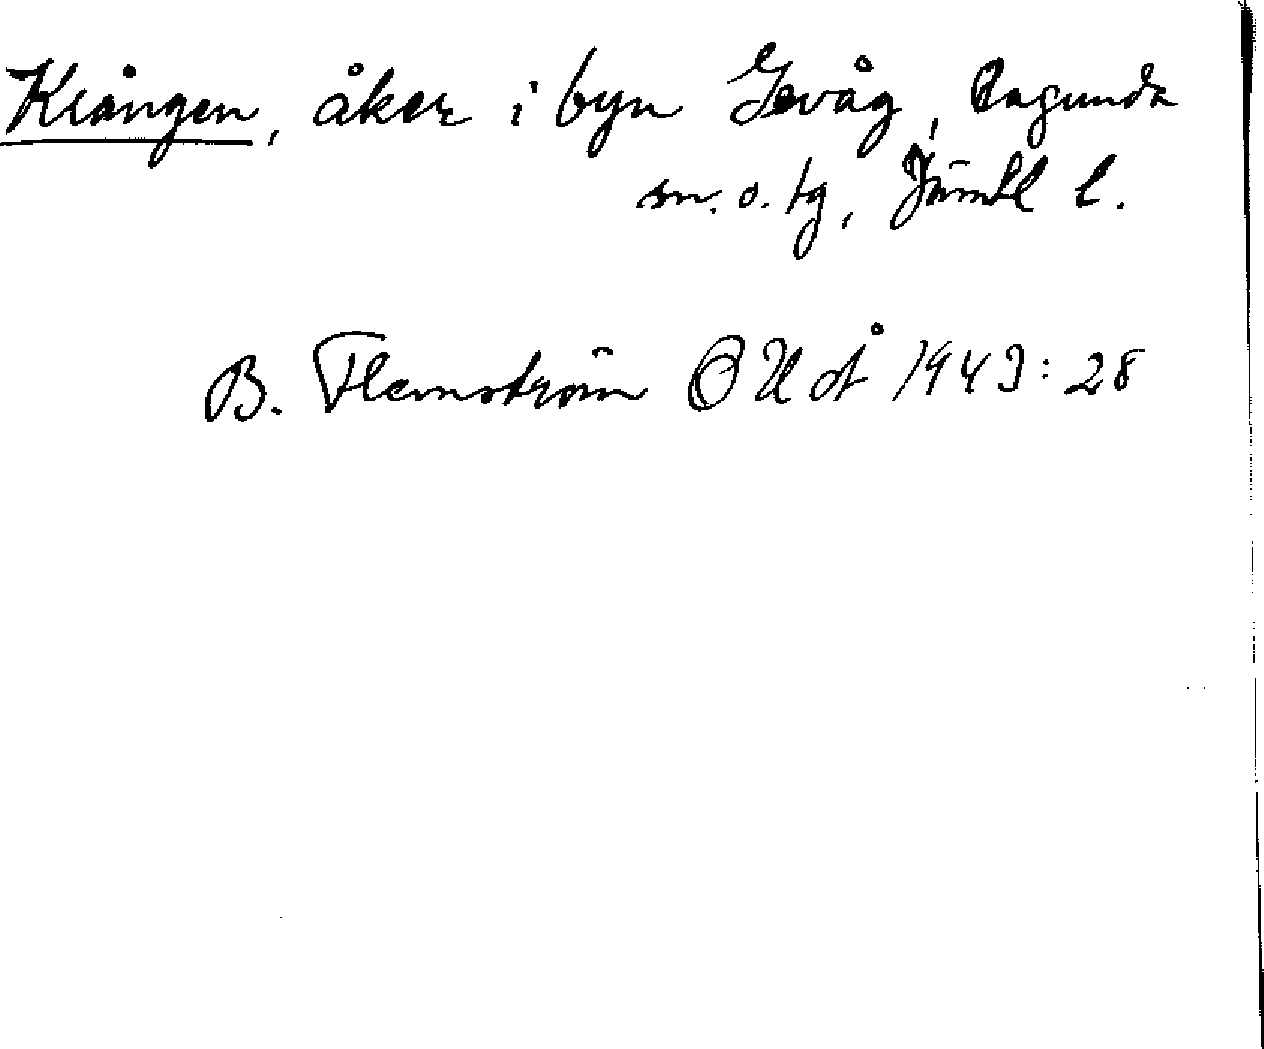 Krången, åker i byn Gevåg, Ragunda
sn. o. tg, Jämtl l.
B. Flemström OUÅ 1943: 28